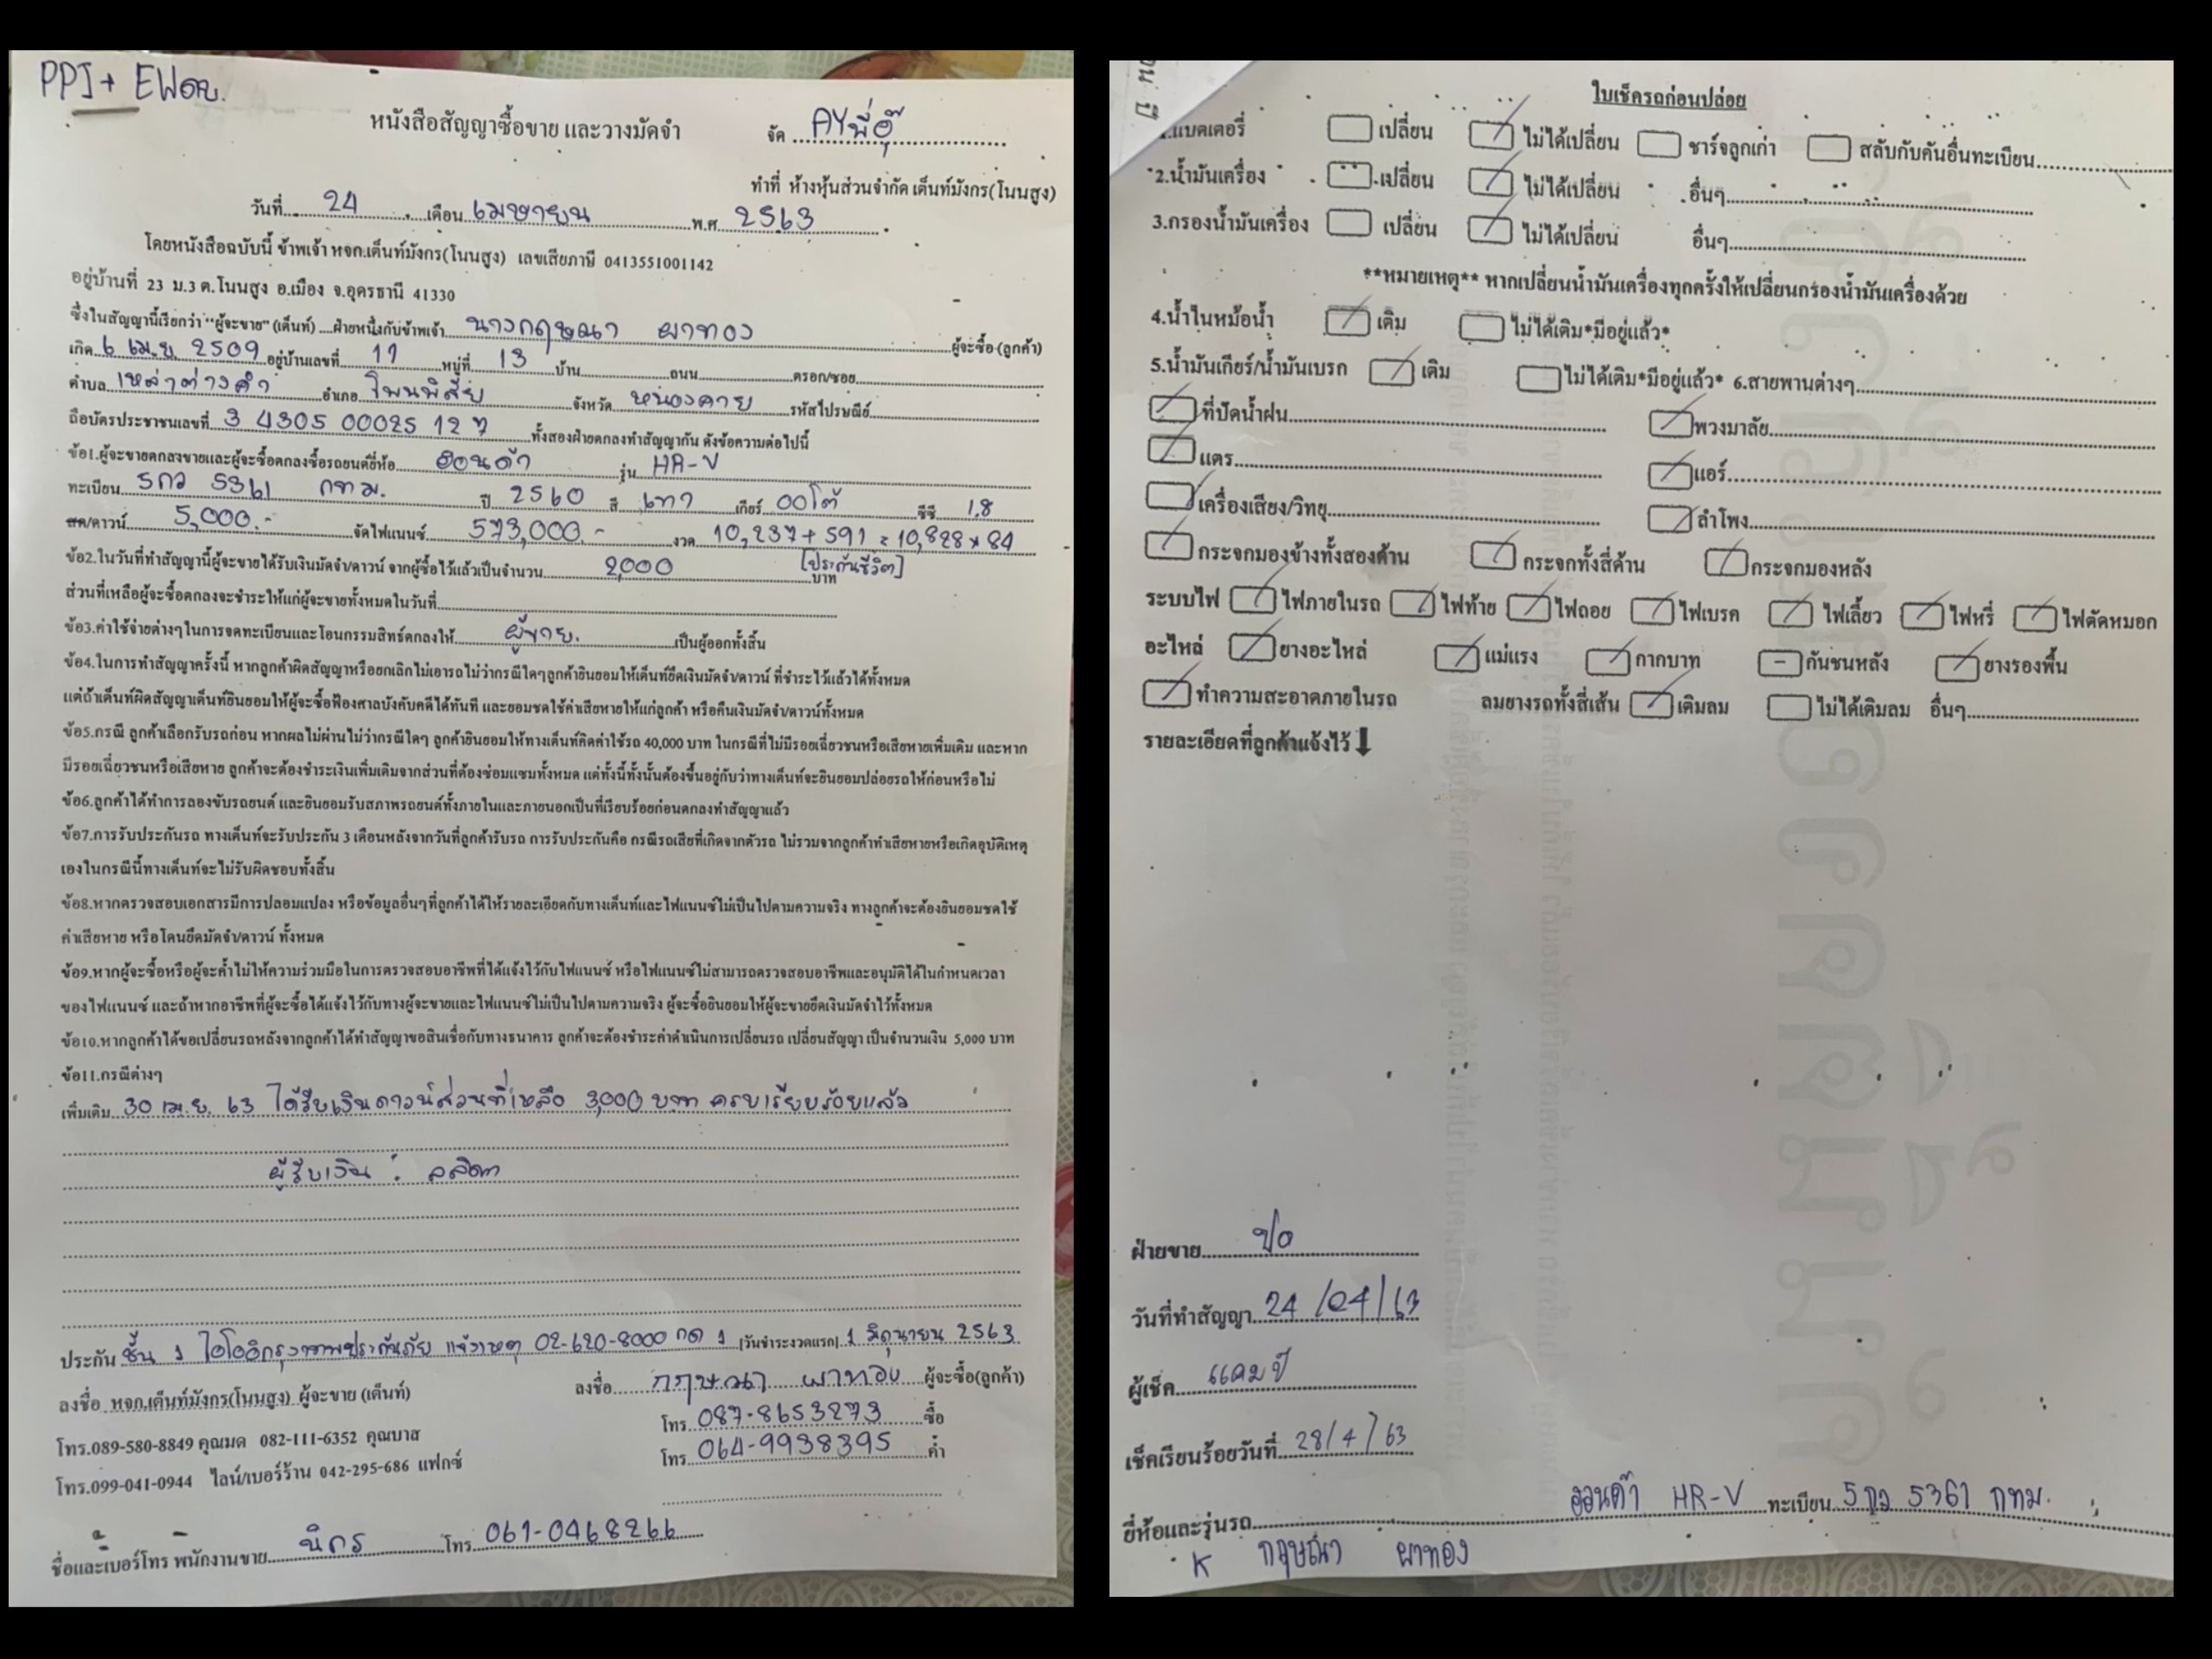 PPI+ EWดข.
หนังสือสัญญาซื้อขาย และวางมัดจำ
จัด AYพี่อุ๊
ทำที่ ห้างหุ้นส่วนจำกัด เต็นท์มังกร(โนนสูง)
วันที่ 24 เดือน เมษายน พ.ศ. 2563
โดยหนังสือฉบับนี้ ข้าพเจ้า หจก.เต็นท์มังกร(โนนสูง) เลขเสียภาษี 0413551001142
อยู่บ้านที่ 23 ม.3 ต.โนนสูง อ.เมือง จ.อุดรธานี 41330
ซึ่งในสัญญานี้เรียกว่า "ผู้จะขาย" (เต็นท์) ....ฝ่ายหนึ่งกับข้าพเจ้า นางกฤษณา ผาทอง ผู้จะซื้อ (ลูกค้า)
เกิด 6 เม.ย. 2509 อยู่บ้านเลขที่ 11 หมู่ที่ 13 บ้าน ถนน ตรอก/ซอย
ตำบล เหล่าต่างคำ อำเภอ โพนพิสัย จังหวัด หนองคาย รหัสไปรษณีย์
ถือบัตรประชาชนเลขที่ 3 4305 00025 12 7 ทั้งสองฝ่ายตกลงทำสัญญากัน ดังข้อความต่อไปนี้
ข้อ1.ผู้จะขายตกลงขายและผู้จะซื้อตกลงซื้อรถยนต์ยี่ห้อ ฮอนด้า รุ่น HR-V
ทะเบียน 5กว 5361 กทม. ปี 2560 สี เทา เกียร์ ออโต้ ซีซี 1.8
สด/ดาวน์ 5,000.- จัดไฟแนนซ์ 573,000.- งวด 10,237+591 = 10,828 x 84
[ประกันชีวิต]
ข้อ2.ในวันที่ทำสัญญานี้ผู้จะขายได้รับเงินมัดจำ/ดาวน์ จากผู้ซื้อไว้แล้วเป็นจำนวน 2,000 บาท
ส่วนที่เหลือผู้จะซื้อตกลงจะชำระให้แก่ผู้จะขายทั้งหมดในวันที่
ข้อ3.ค่าใช้จ่ายต่างๆในการจดทะเบียนและโอนกรรมสิทธ์ตกลงให้ ผู้ขาย. เป็นผู้ออกทั้งสิ้น
ข้อ4.ในการทำสัญญาครั้งนี้ หากลูกค้าผิดสัญญาหรือยกเลิกไม่เอารถไม่ว่ากรณีใดๆลูกค้ายินยอมให้เต็นท์ยึดเงินมัดจำ/ดาวน์ ที่ชำระไว้แล้วได้ทั้งหมด
แต่ถ้าเต็นท์ผิดสัญญาเต็นท์ยินยอมให้ผู้จะซื้อฟ้องศาลบังคับคดีได้ทันที และยอมชดใช้ค่าเสียหายให้แก่ลูกค้า หรือคืนเงินมัดจำ/ดาวน์ทั้งหมด
ข้อ5.กรณี ลูกค้าเลือกรับรถก่อน หากผลไม่ผ่านไม่ว่ากรณีใดๆ ลูกค้ายินยอมให้ทางเต็นท์คิดค่าใช้รถ 40,000 บาท ในกรณีที่ไม่มีรอยเฉี่ยวชนหรือเสียหายเพิ่มเติม และหาก
มีรอยเฉี่ยวชนหรือเสียหาย ลูกค้าจะต้องชำระเงินเพิ่มเติมจากส่วนที่ต้องซ่อมแซมทั้งหมด แต่ทั้งนี้ทั้งนั้นต้องขึ้นอยู่กับว่าทางเต็นท์จะยินยอมปล่อยรถให้ก่อนหรือไม่
ข้อ6.ลูกค้าได้ทำการลองขับรถยนต์ และยินยอมรับสภาพรถยนต์ทั้งภายในและภายนอกเป็นที่เรียบร้อยก่อนตกลงทำสัญญาแล้ว
ข้อ7.การรับประกันรถ ทางเต็นท์จะรับประกัน 3 เดือนหลังจากวันที่ลูกค้ารับรถ การรับประกันคือ กรณีรถเสียที่เกิดจากตัวรถ ไม่รวมจากลูกค้าทำเสียหายหรือเกิดอุบัติเหตุ
เองในกรณีนี้ทางเต็นท์จะไม่รับผิดชอบทั้งสิ้น
ข้อ8.หากตรวจสอบเอกสารมีการปลอมแปลง หรือข้อมูลอื่นๆที่ลูกค้าได้ให้รายละเอียดกับทางเต็นท์และไฟแนนซ์ไม่เป็นไปตามความจริง ทางลูกค้าจะต้องยินยอมชดใช้
ค่าเสียหาย หรือโดนยึดมัดจำ/ดาวน์ ทั้งหมด
ข้อ9.หากผู้จะซื้อหรือผู้จะค้ำไม่ให้ความร่วมมือในการตรวจสอบอาชีพที่ได้แจ้งไว้กับไฟแนนซ์ หรือไฟแนนซ์ไม่สามารถตรวจสอบอาชีพและอนุมัติได้ในกำหนดเวลา
ของไฟแนนซ์ และถ้าหากอาชีพที่ผู้จะซื้อได้แจ้งไว้กับทางผู้จะขายและไฟแนนซ์ไม่เป็นไปตามความจริง ผู้จะซื้อยินยอมให้ผู้จะขายยึดเงินมัดจำไว้ทั้งหมด
ข้อ10.หากลูกค้าได้ขอเปลี่ยนรถหลังจากลูกค้าได้ทำสัญญาขอสินเชื่อกับทางธนาคาร ลูกค้าจะต้องชำระค่าดำเนินการเปลี่ยนรถ เปลี่ยนสัญญา เป็นจำนวนเงิน 5,000 บาท
ข้อ11.กรณีต่างๆ
เพิ่มเติม 30 เม.ย. 63 ได้รับเงินดาวน์ส่วนที่เหลือ 3,000 บาท ครบเรียบร้อยแล้ว
ผู้รับเงิน : ลลิตา
ประกัน ชั้น 1 ไอโออิกรุงเทพประกันภัย แจ้งเหตุ 02-620-8000 กด 1 [วันชำระงวดแรก] 1 มิถุนายน 2563
ลงชื่อ หจก.เต็นท์มังกร(โนนสูง) ผู้จะขาย (เต็นท์)
ลงชื่อ กฤษณา ผาทอง ผู้จะซื้อ(ลูกค้า)
โทร. 087-8653273 ซื้อ
โทร.089-580-8849 คุณมด 082-111-6352 คุณบาส
โทร. 064-9938395 ค้ำ
โทร.099-041-0944 ไลน์/เบอร์ร้าน 042-295-686 แฟกซ์
ชื่อและเบอร์โทร พนักงานขาย นิกร โทร. 061-0468266
ใบเช็ครถก่อนปล่อย
แบตเตอรี่ เปลี่ยน ไม่ได้เปลี่ยน ชาร์จลูกเก่า สลับกับคันอื่นทะเบียน
2.น้ำมันเครื่อง เปลี่ยน ไม่ได้เปลี่ยน อื่นๆ
3.กรองน้ำมันเครื่อง เปลี่ยน ไม่ได้เปลี่ยน อื่นๆ
**หมายเหตุ** หากเปลี่ยนน้ำมันเครื่องทุกครั้งให้เปลี่ยนกรองน้ำมันเครื่องด้วย
4.น้ำในหม้อน้ำ เติม ไม่ได้เติม*มีอยู่แล้ว*
5.น้ำมันเกียร์/น้ำมันเบรก เติม ไม่ได้เติม*มีอยู่แล้ว* 6.สายพานต่างๆ
ที่ปัดน้ำฝน พวงมาลัย
แตร แอร์
เครื่องเสียง/วิทยุ ลำโพง
กระจกมองข้างทั้งสองด้าน กระจกทั้งสี่ด้าน กระจกมองหลัง
ระบบไฟ ไฟภายในรถ ไฟท้าย ไฟถอย ไฟเบรค ไฟเลี้ยว ไฟหรี่ ไฟตัดหมอก
อะไหล่ ยางอะไหล่ แม่แรง กากบาท กันชนหลัง ยางรองพื้น
ทำความสะอาดภายในรถ ลมยางรถทั้งสี่เส้น เติมลม ไม่ได้เติมลม อื่นๆ
รายละเอียดที่ลูกค้าแจ้งไว้
ฝ่ายขาย ปอ
วันที่ทำสัญญา 24/04/63
ผู้เช็ค แคมป์
เช็คเรียบร้อยวันที่ 28/4/63
ยี่ห้อและรุ่นรถ ฮอนด้า HR-V ทะเบียน 5กว 5361 กทม.
K กฤษณา ผาทอง